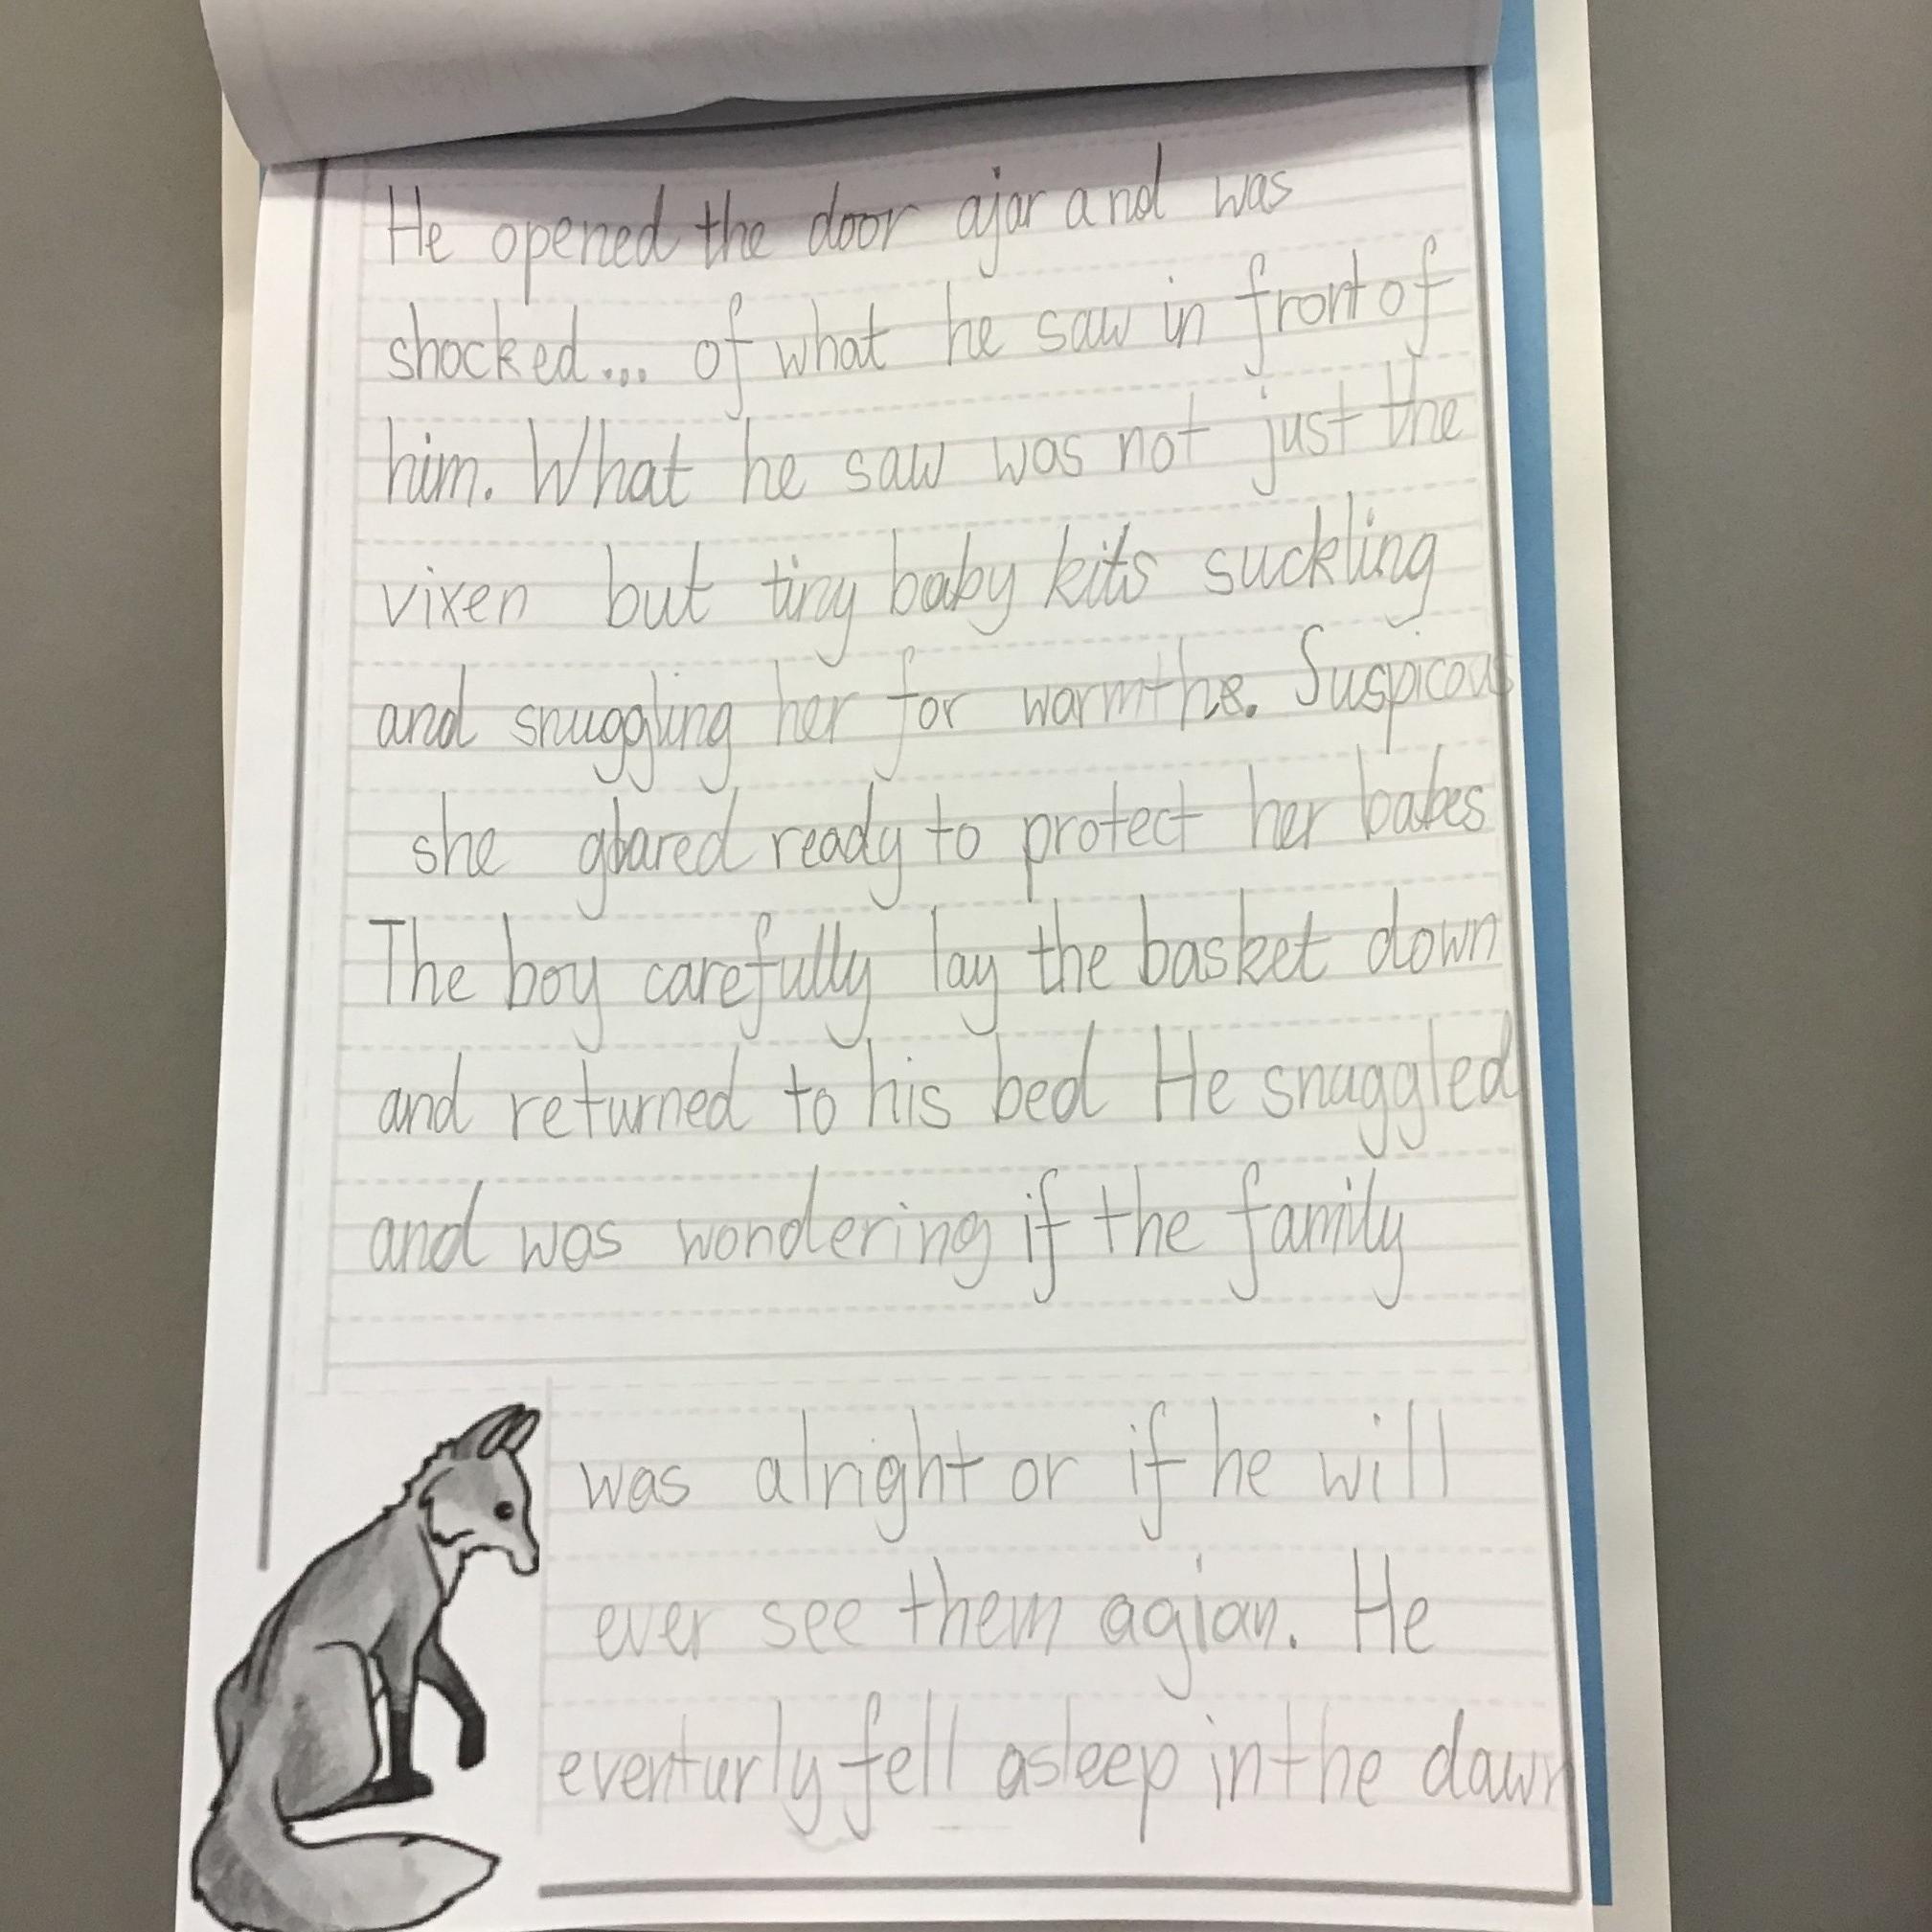 He opened the door ajar and was
shocked... of what he saw in front of
him. What he saw was not just the
vixen but tiny baby kits suckling
and snuggling her for warmthe. Suspicous
she glared ready to protect her babes
The boy carefully lay the basket down
and returned to his bed He snuggled
and was wondering if the family
was alright or if he will
ever see them agian. He
eventurly fell asleep in the dawn